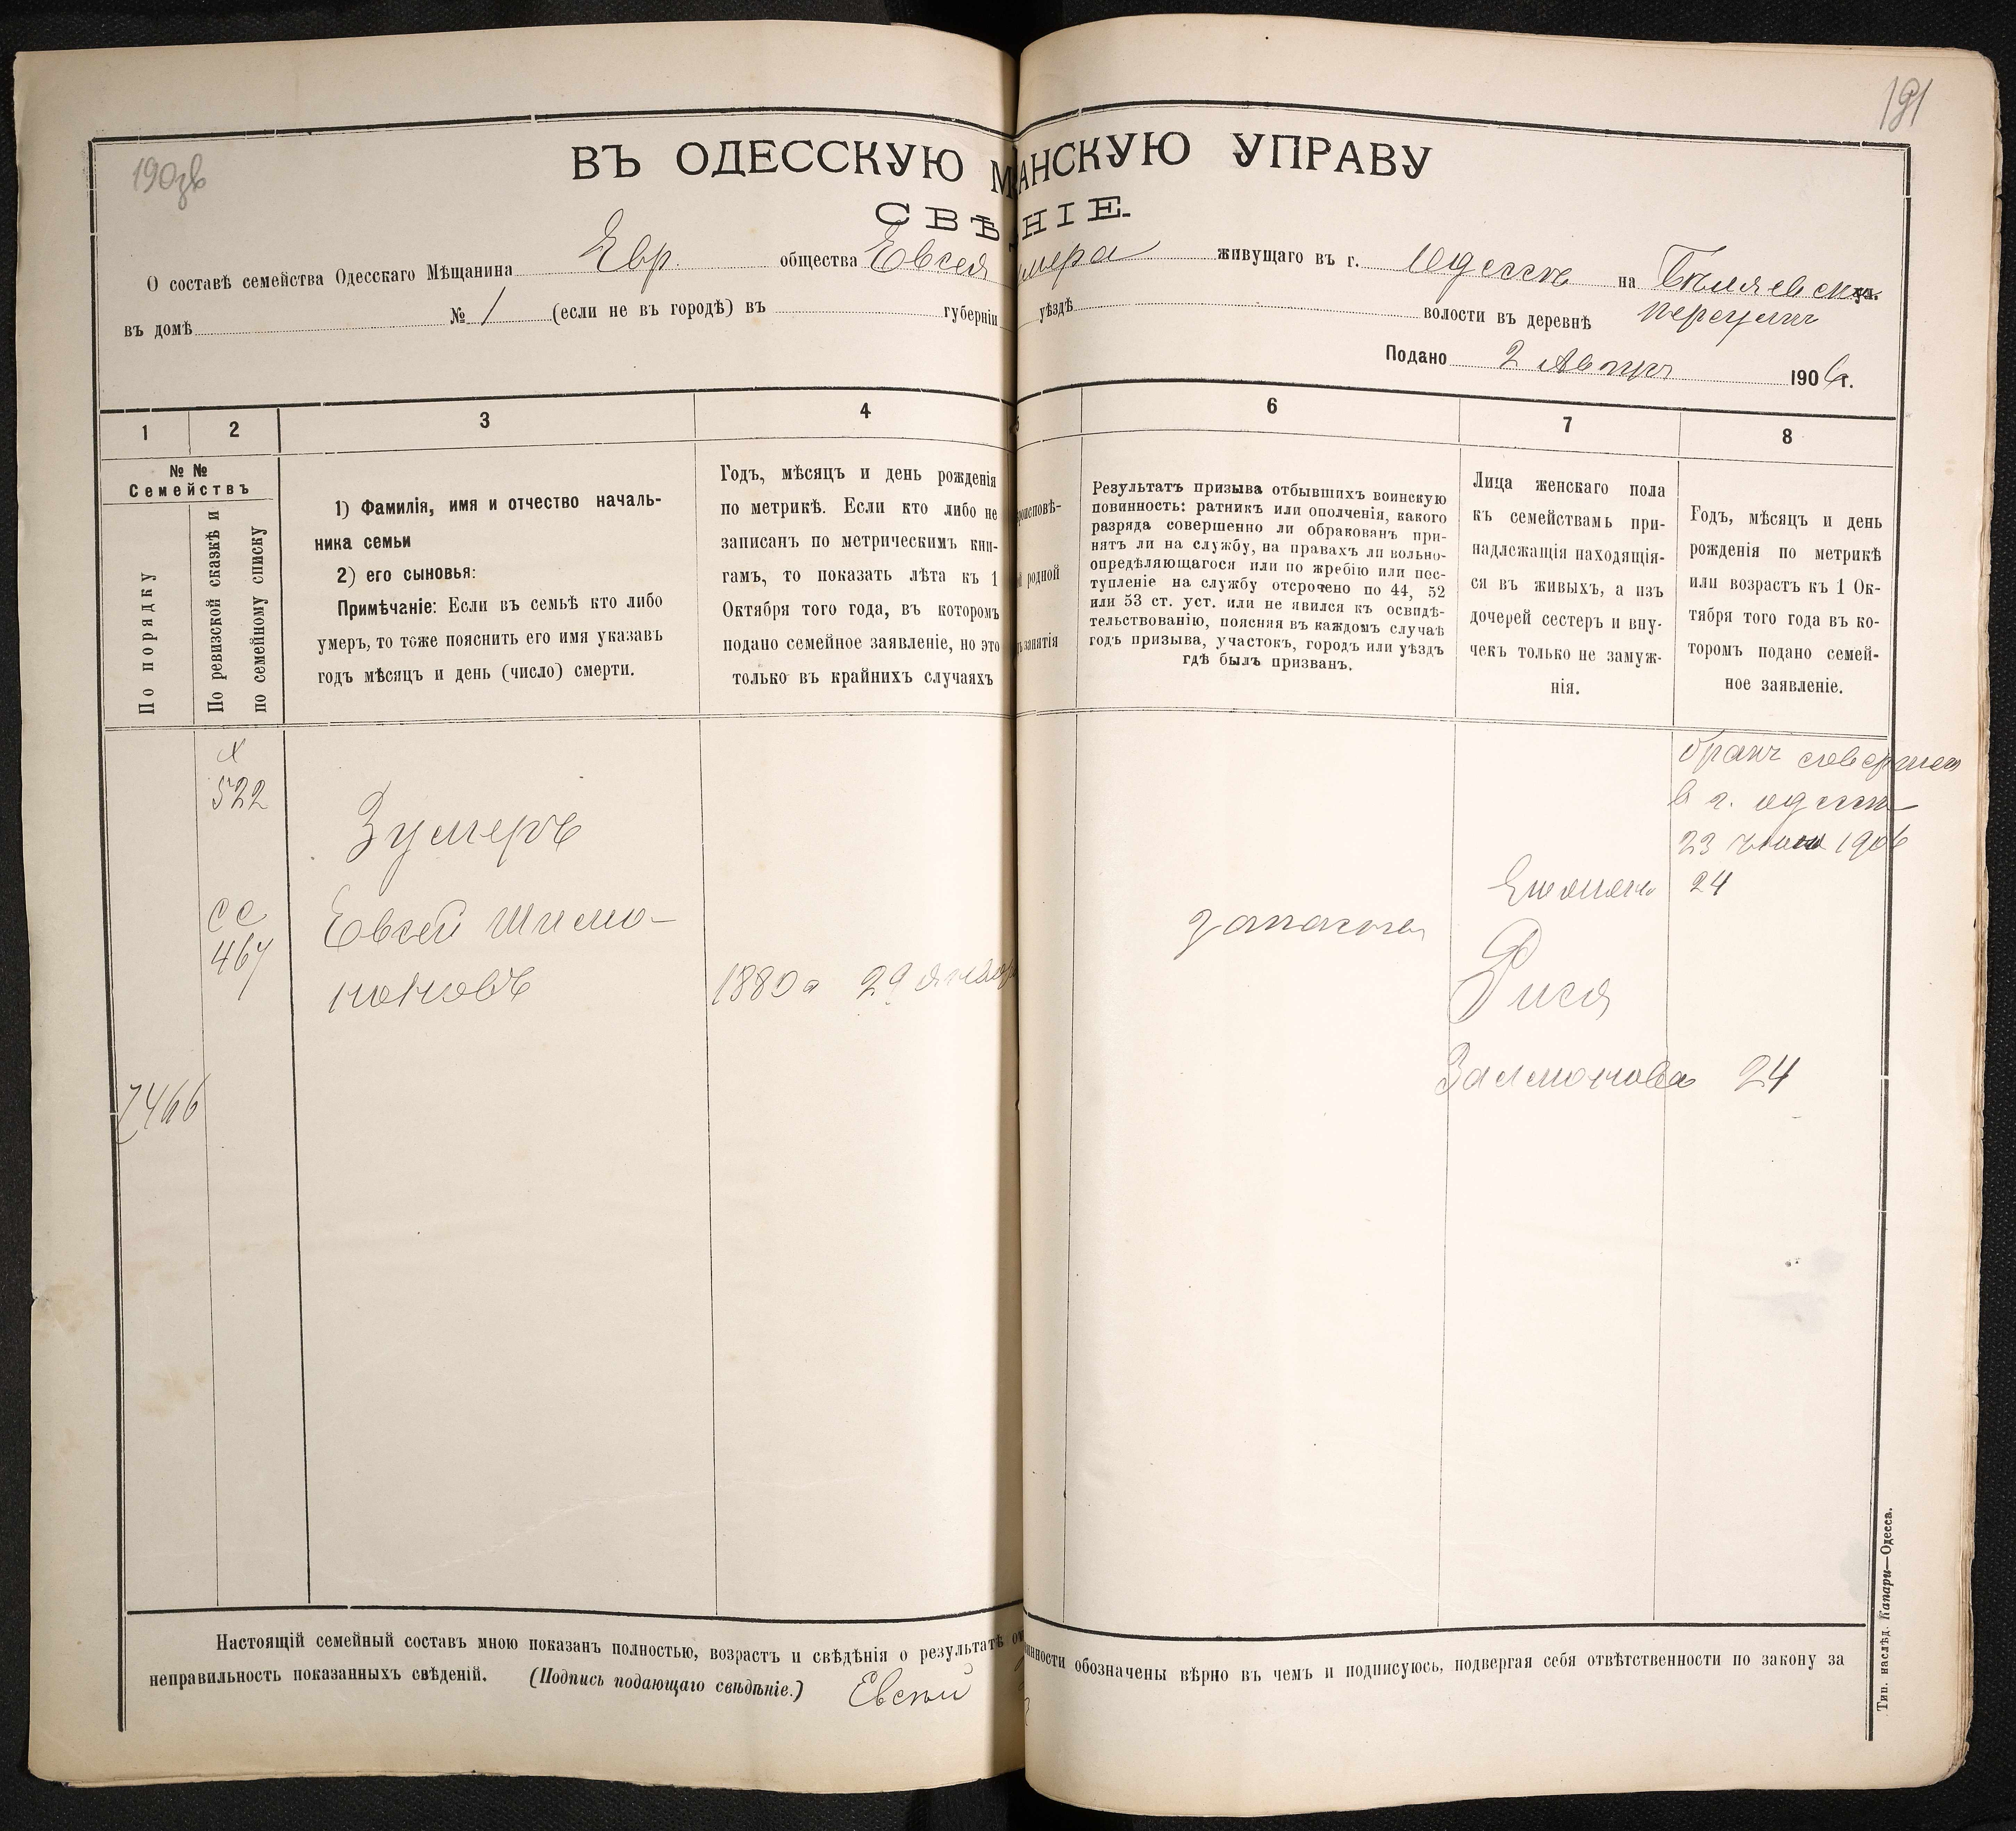 191
190зв
ВЪ ОДЕССКУЮ М АНСКУЮ УПРАВУ
СВѢ НІЕ.
О составѣ семейства Одесскаго Мѣщанина Евр. общества Евсея мера живущаго въ г. Одессѣ на Бѣляевск ул.
въ домѣ № 1 (если не въ городѣ) въ губерніи уѣздѣ волости въ деревнѣ
Подано 2 1906 г.
1 2 3 4 5 6 7 8
№ №
Семействъ
По порядку
По ревизской сказкѣ и
по семейному списку
1) Фамилія, имя и отчество началь-
ника семьи
2) его сыновья:
Примѣчаніе: Если въ семьѣ кто либо
умеръ, то тоже пояснить его имя указавъ
годъ мѣсяцъ и день (число) смерти.
Годъ, мѣсяцъ и день рожденія
по метрикѣ. Если кто либо не
записанъ по метрическимъ кни-
гамъ, то показать лѣта къ 1
Октября того года, въ которомъ
подано семейное заявленіе, но это
только въ крайнихъ случаяхъ
роисповѣ-
родной
занятія
Результатъ призыва отбывшихъ воинскую
повинность: ратникъ или ополченія, какого
разряда совершенно ли обракованъ при-
нятъ ли на службу, на правахъ ли вольно-
опредѣляющагося или по жребію или пос-
тупленіе на службу отсрочено по 44, 52
или 53 ст. уст. или не явился къ освидѣ-
тельствованію, поясняя въ каждомъ случаѣ
годъ призыва, участокъ, городъ или уѣздъ
гдѣ былъ призванъ.
Лица женскаго пола
къ семействамъ при-
надлежащія находящія-
ся въ живыхъ, а изъ
дочерей сестеръ и вну-
чекъ только не замуж-
нія.
Годъ, мѣсяцъ и день
рожденія по метрикѣ
или возрастъ къ 1 Ок-
тября того года въ ко-
торомъ подано семей-
ное заявленіе.
х
522
Зумеръ
сс
467
Евсей Шимо-
ноновъ
1880 г 29 январ
7466
запасной
Рися
Залмонова 24
бракъ совершен
в г. одессе
23 1906
24
Настоящій семейный составъ мною показанъ полностью, возрастъ и свѣдѣнія о результатѣ от инности обозначены вѣрно въ чемъ и подписуюсь, подвергая себя отвѣтственности по закону за
неправильность показанныхъ свѣдѣній. (Подпись подающаго свѣдѣніе.) Евсѣй
Тип. наслѣд. Капари—Одесса.